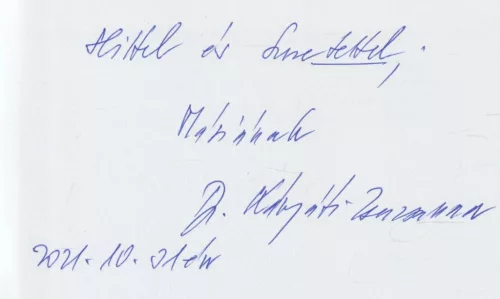 Hittel és Szeretettel,
Máriának
Dr. Kárpáti Zsuzsanna
2021. 10. 01-én